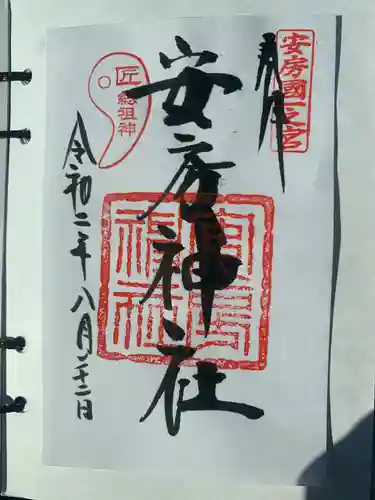 奉拝
安房國一之宮
安房神社
安房神社
匠総祖神
令和二年八月二十二日